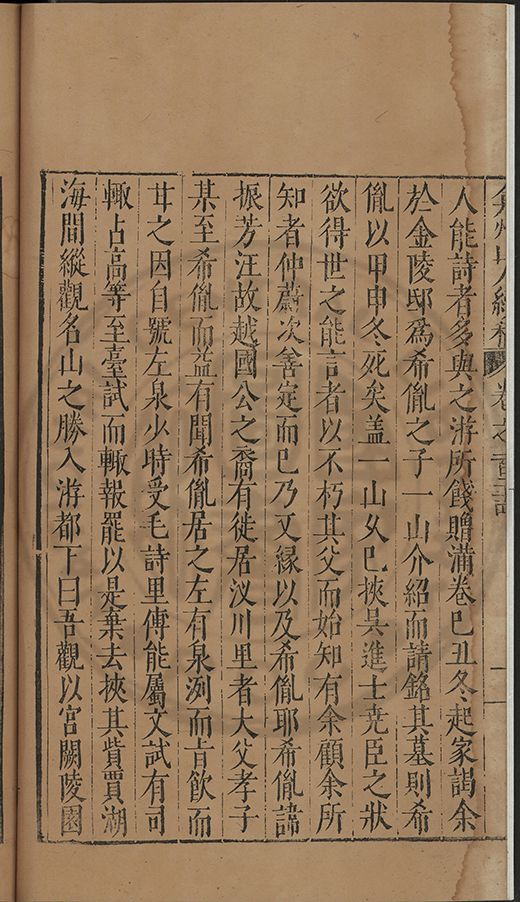 卷之一百二
人能詩者多與之游所餞贈滿卷巳丑冬起家謁余
於金陵邸爲希胤之子一山介紹而請銘其墓則希
胤以甲申冬死矣盖一山乆巳挾吴進士尭臣之狀
欲得世之能言者以不朽其父而始知有余顧余所
知者仲蔚次善定而巳乃又緣以及希胤耶希胤諱
振芳汪故越國公之裔有徙居汊川里者大父孝子
某至希胤而益有聞希胤居之左有泉洌而旨飲而
甘之因自號左泉少時受毛詩里傅能屬文試有司
輙占高等至臺試而輙報罷以是棄去挾其貲賈湖
海間縱觀名山之勝入游都下曰吾觀以宫闕陵園